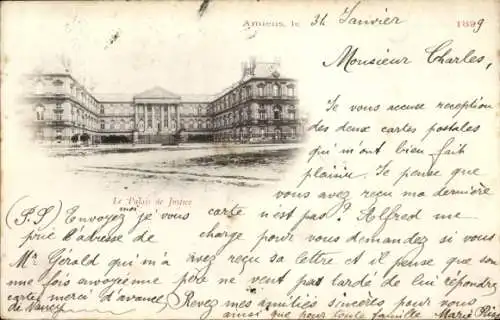 Amiens, le 31 Janvier 1899
Monsieur Charles,
Je vous accuse reception
des deux cartes postales
qui m'ont bien fait
plaisir. Je pense que
vous avez reçu ma dernière
Le Palais de Justice
carte n'est pas? Alfred me
charge pour vous demandez si vous
avez reçu sa lettre et il pense que son
père ne vent pas tardé de lui répondre
Revez mes amitiés sincères pour vous
ainsi que pour toute famille Marie
(P.S) Envoyez moi j'e vous
prie l'adresse de
Mr Gérald qui m'a
une fois envoyé une
carte merci d'avance
de Nancy